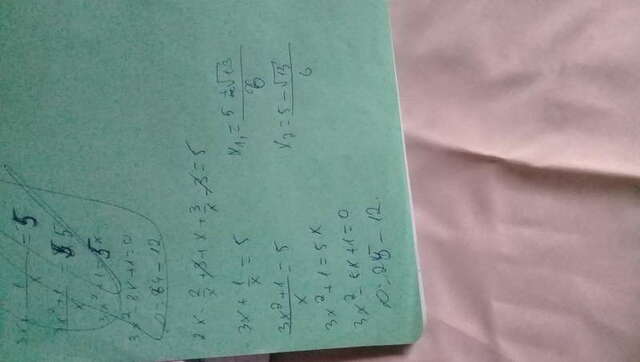 3x + 1/x = 5
3x²+1/x = 5
3x²+1=5x
3x²-8x+1=0
D=64-12
2x - 2/x + 3 + x + 3/x - 3 = 5
3x + 1/x = 5
3x²+1/x = 5
3x²+1=5x
3x²-5x+1=0
D=25-12.
x₁,=5+√13/6
x₂=5-√13/6